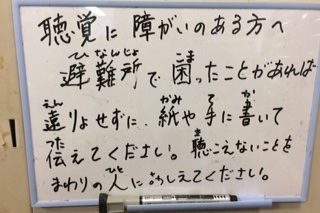 聴覚に障がいのある方へ
避難所で困ったことがあれば
遠りょせずに、紙や手に書いて
伝えてください。聴こえないことを
まわりの人におしえてください。